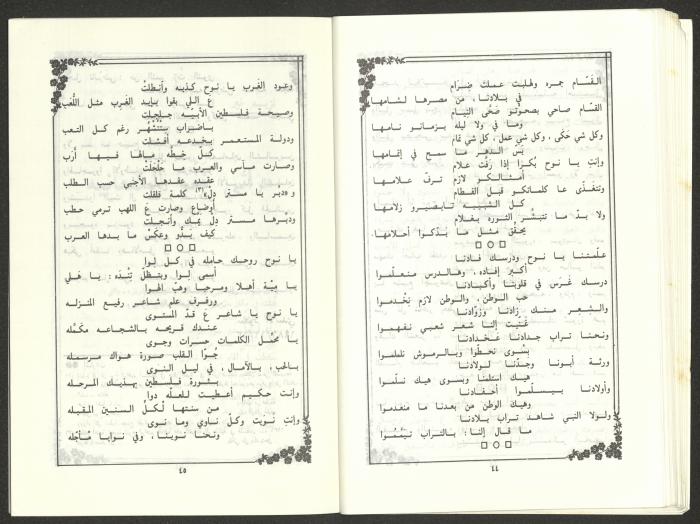 القسّام جمره وهلبت عمك ضِرَام
في بلادنا، من مصرها لشامها
القسّام صاحي بصحوتو صَحَّى النِيام
وما في ولا ليله بزمانو نامها
وكل شي حَكَى، وكل شي عمل، وكل شي تمام
بَسّ الدهر ما سمح في إتمامها
وإنتِ يا نوح بُكرا إذا رَفّت علام
أمثالكو لازم ترفّ علامها
وتتغذّى عا كلماتكو قبل الفطام
كل الشبيبه تابصيرو زلامها
ولا بدّ ما تتبشّر الثوره بغلام
يحقّق مثل ما بَدّكوا أحلامها
□ ○ □
علّمتنا يا نوح ودرسك فادنا
أكبر إفاده، وهالدرس منعلّموا
درسك غَرَس في قلوبنا وأكبادنا
حب الوطن، والوطن لازم نِخْدموا
والشعر منك زادنا وزوّادنا
غنّيت إلنا شعر شعبي نفهموا
ونحنا تراب جدادنا عَخدادنا
بِسْوى نحطّوا وبالرموش نلملموا
ورثة أبونا وجدّنا لولادنا
هيك استلمنا وبسوى هيك نسلّموا
وأولادنا بيسلّموا أحفادنا
وهيك الوطن من بعدنا ما منعدموا
ولولا النبي شاهد تراب بلادنا
ما قال إلنا: بالتراب تيمّموا
□ ○ □
٤٤
وعود الغرب يا نوح كذبه وانطلتْ
ع اللي بقوا بإيد الغرب مثل اللُعَب
وصيحة فلسطين الأبيّه جلجلت
باضراب بيتْشُهُر رغم كل التعب
ودولة المستعمر بخدعه أفشلت
كل خطّه مافا فيها أرَب
وصارت مآسي والعرب ما حَلْحَلَت
عقده عقدها الأجنبي حسب الطلب
و«دبر يا مستر دِل»(٣) كلمة قلقلت
أوضاع وصارت ع اللهب ترمي حطب
ودبّرها مستر دل بمّك وانجلت
كيف بَدُّو وعكْس ما بدها العرب
□ ○ □
يا نوح روحك حامله في كل لوا
أسمى لوا وبتظلّ تِنْدَه: يا هلي
يا ميّة أهلا ومرحبا وهبّ الهوا
ورفرف علم شاعر رفيع المنزله
يا نوح يا شاعر عَ قدّ المستوى
عندك قريحه بالشجاعه مكمّله
يا محمّل الكلمات حسرات وجوى
جُوّا القلب صورة هواك مرسمله
بالحب، بالآمال، في ليل النوى
بثورة فلسطين بهذيك المرحله
وإنت حكيم أعطيت للعلّه دوا
من سنتها لكلّ السنين المقبله
وإنت نويت وكلّ ناوي وما نوى
ونحنا نوينا، وفي نوايا مُأجّله
٤٥